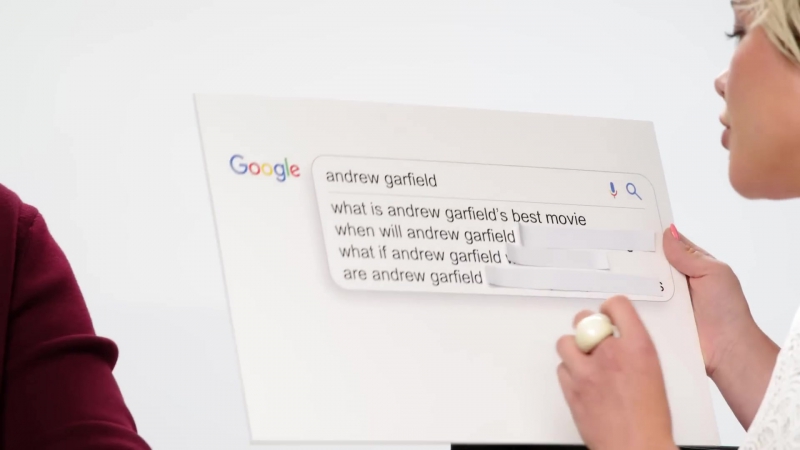 Google
andrew garfield
what is andrew garfield's best movie
when will andrew garfield
what if andrew garfield
are andrew garfield